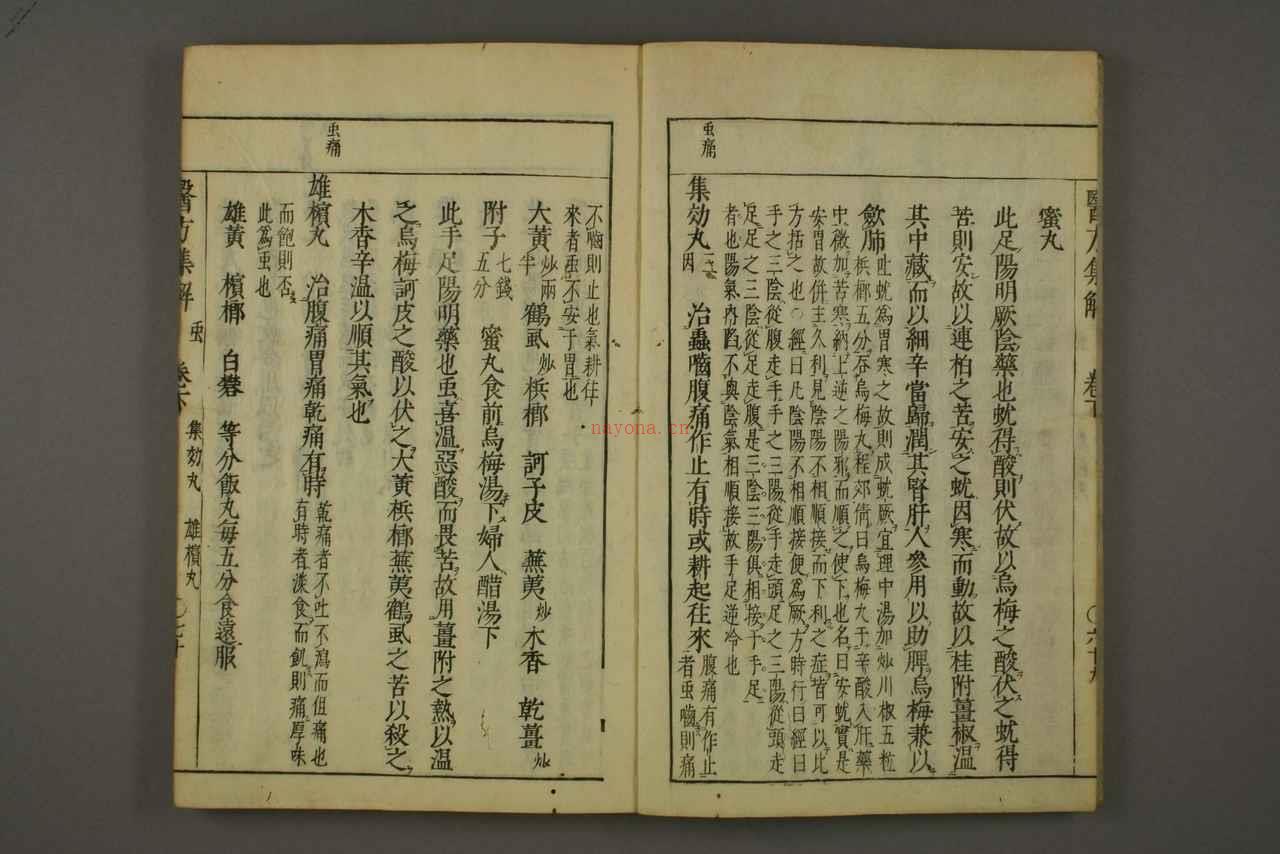 醫方集解 卷下 〇六十九
蜜丸
此足陽明厥陰藥也蚘得酸則伏故以烏梅之酸伏之蚘得
苦則安故以連柏之苦安之蚘因寒而動故以桂附薑椒温
其中藏而以細辛當歸潤其腎肝人參用以助脾烏梅兼以
歛肺
吐蚘為胃寒之故則成蚘厥宜理中湯加炒川椒五粒
梹榔五分吞烏梅丸程郊倩曰烏梅丸于辛酸入肝藥
中微加苦寒納上逆之陽邪而順之使下也名曰安蚘實是
安胃故併主久利見陰陽不相順接而下利之症皆可以此
方括之也〇經曰凡陰陽不相順接便為厥方時行曰經曰
手之三陰從腹走手手之三陽從手走頭足之三陽從頭走
足足之三陰從足走腹是三陰三陽俱相接于手足
者也陽氣內陷不與陰氣相順接故手足逆冷也
虫痛
集効丸 三因 治蟲嚙腹痛作止有時或耕起往來
腹痛有作止
者虫嚙則痛
不嚙則止也氣耕往
來者虫不安于胃也
大黃 炒兩半 鶴虱 炒 梹榔 訶子皮 蕪荑 炒 木香 乾薑 炒
附子 七錢五分 蜜丸食前烏梅湯下婦人醋湯下
此手足陽明藥也虫喜温惡酸而畏苦故用薑附之熱以温
之烏梅訶皮之酸以伏之大黃梹榔蕪荑鶴虱之苦以殺之
木香辛温以順其氣也
虫痛
雄檳丸 治腹痛胃痛乾痛有時
乾痛者不吐不瀉而但痛也
有時者淡食而飢則痛厚味
而飽則否
此為虫也
雄黃 檳榔 白礬 等分飯丸每五分食遠服
醫方集解 虫 卷下 集効丸 雄檳丸 〇七十
nayona.cn